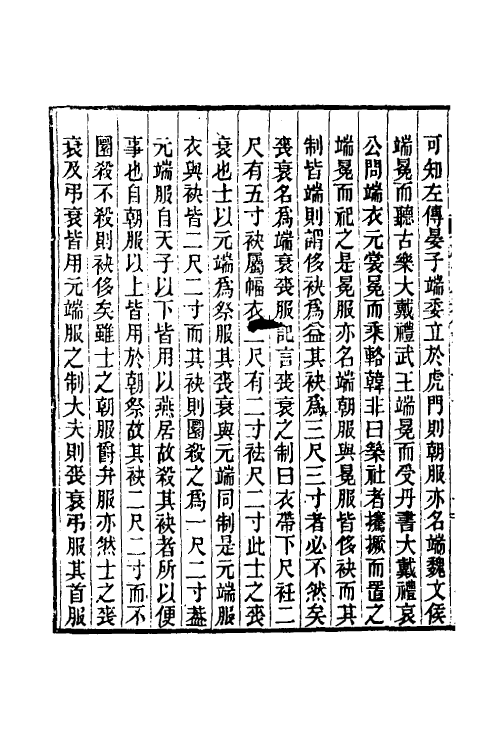 可知左傳晏子端委立於虎門則朝服亦名端魏文侯
端冕而聽古樂大戴禮武王端冕而受丹書大戴禮哀
公問端衣元裳冕而乘輅韓非曰築社者攐撅而置之
端冕而祀之是冕服亦名端朝服與冕服皆侈袂而其
制皆端則謂侈袂爲益其袂爲三尺三寸者必不然矣
喪衰名爲端衰喪服記言喪衰之制曰衣帶下尺衽二
尺有五寸袂屬幅衣二尺有二寸袪尺二寸此士之喪
衰也士以元端爲祭服其喪衰與元端同制是元端服
衣與袂皆二尺二寸而其袂則圜殺之爲一尺二寸葢
元端服自天子以下皆用以燕居故殺其袂者所以便
事也自朝服以上皆用於朝祭故其袂二尺二寸而不
圜殺不殺則袂侈矣雖士之朝服爵弁服亦然士之喪
衰及弔衰皆用元端服之制大夫則喪衰弔服其首服